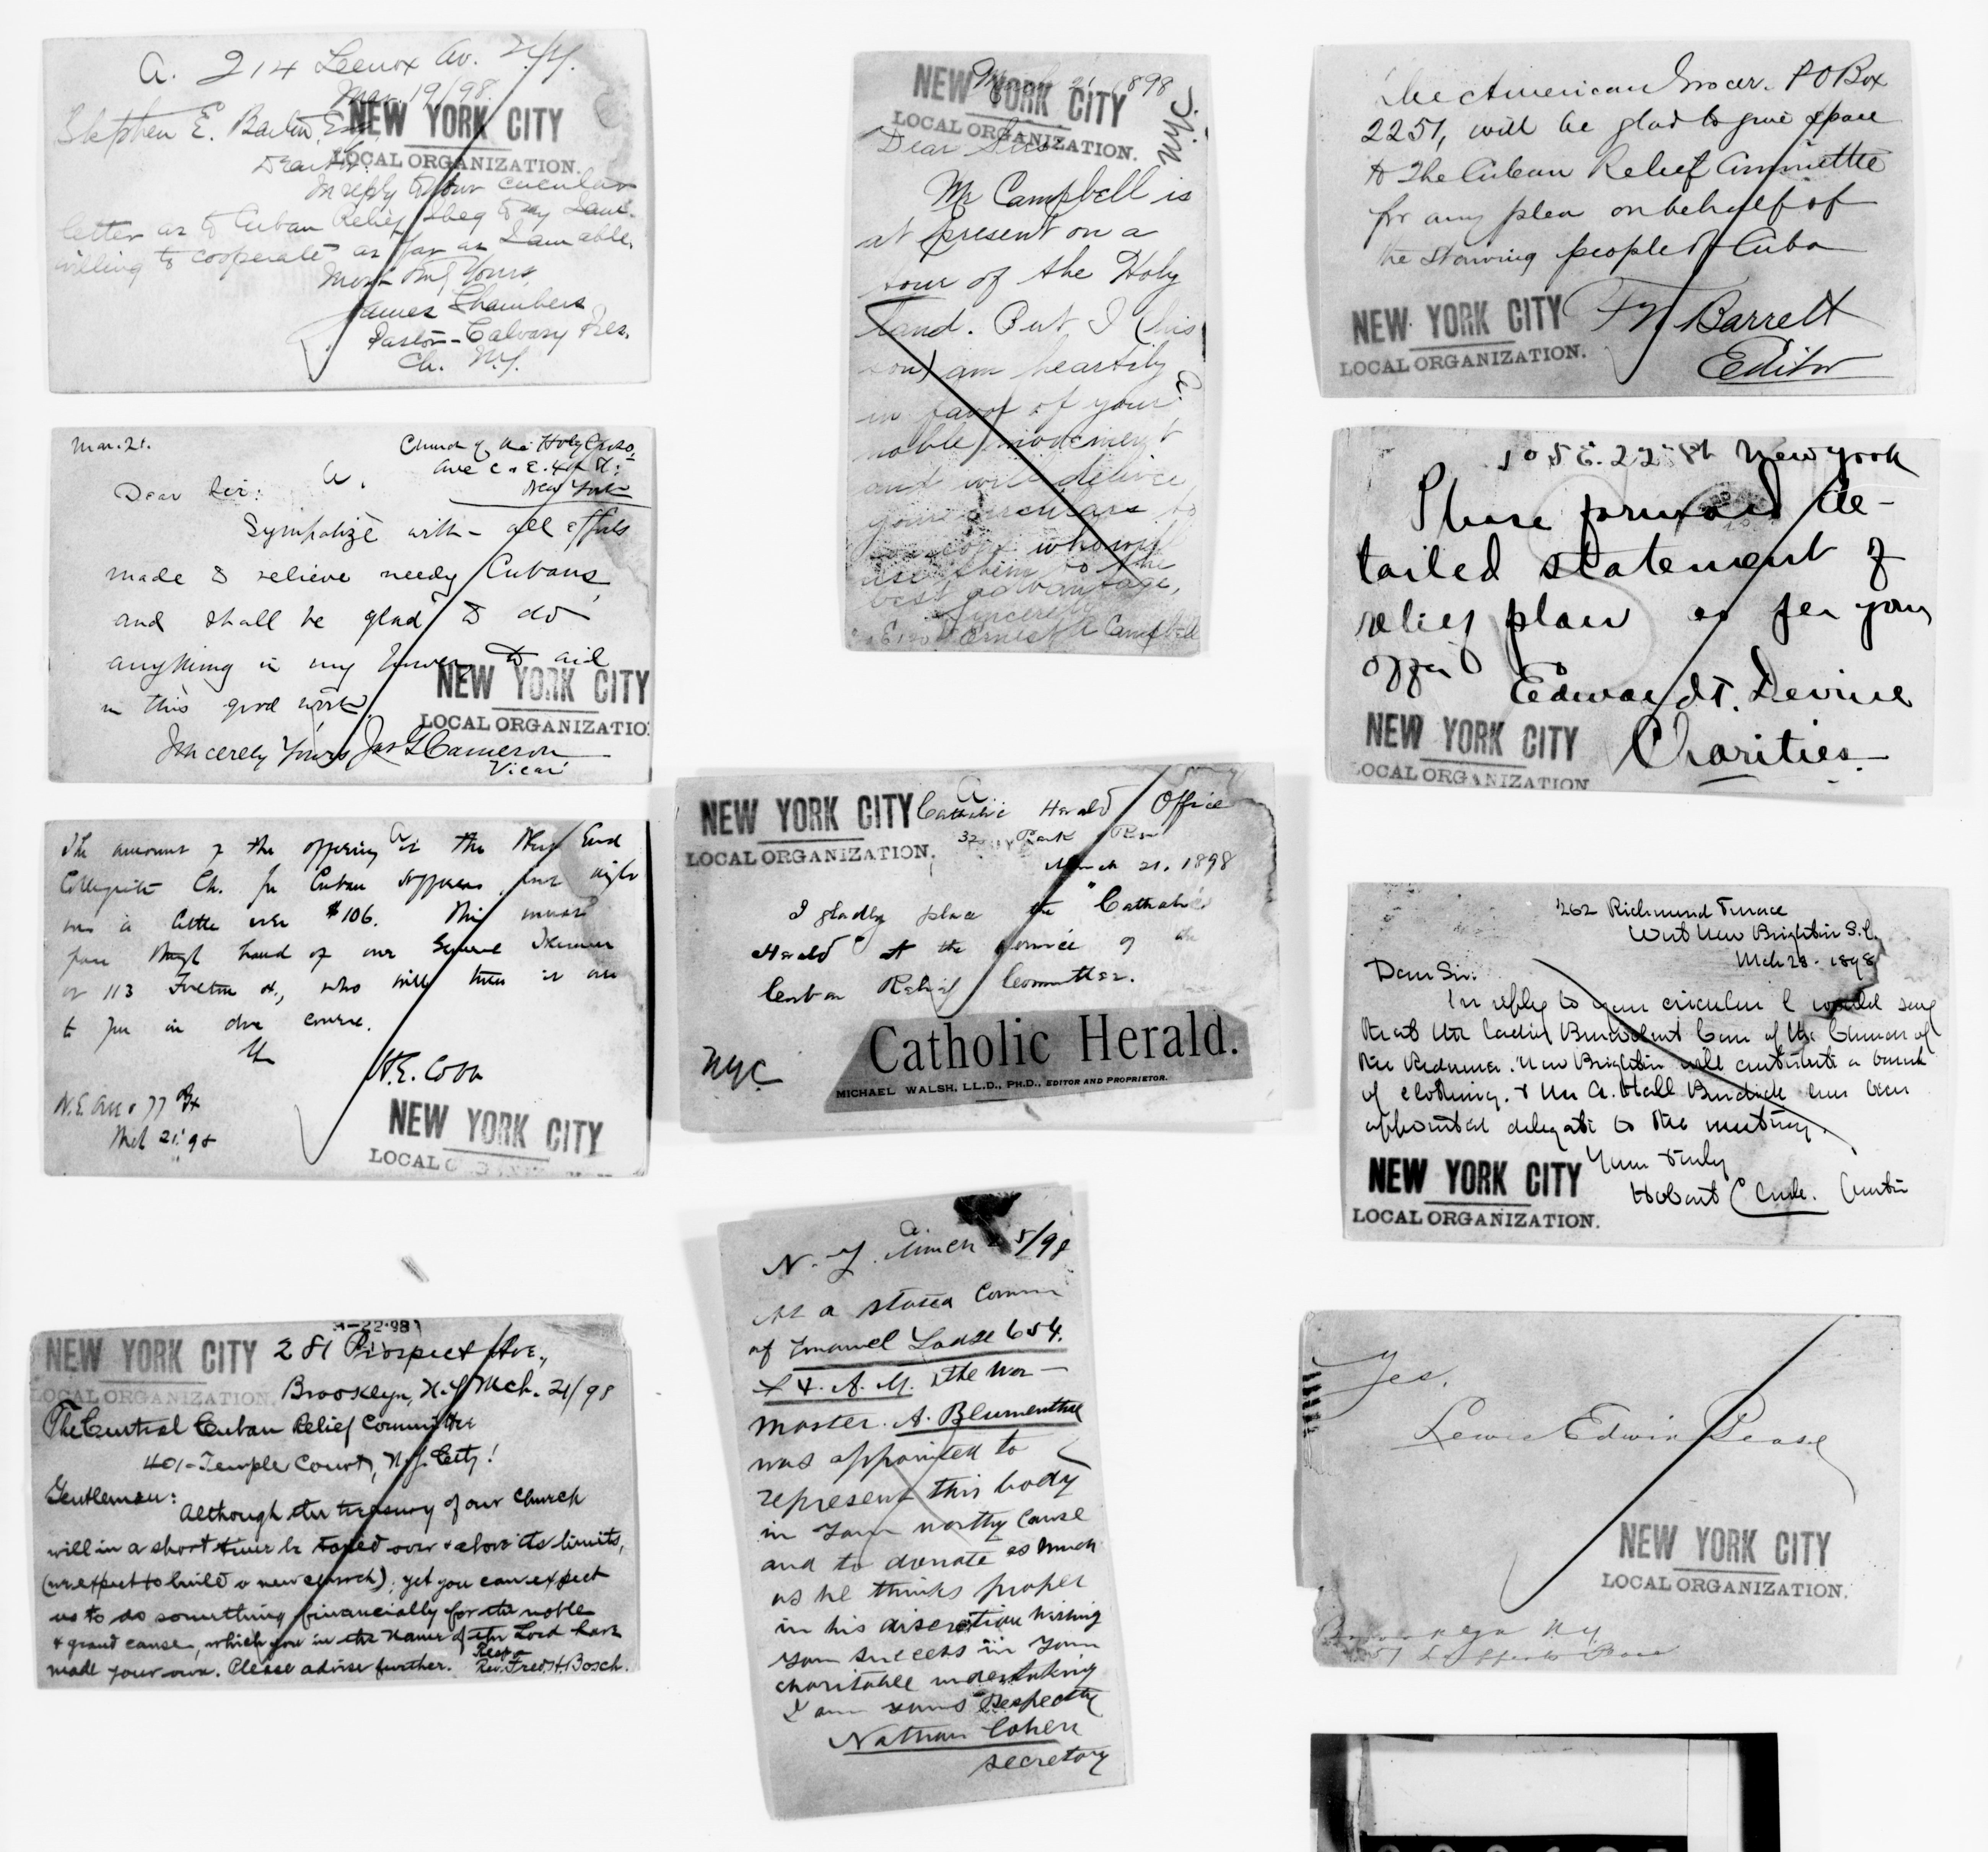 A. 214 Lenox Av. N.Y.
Mar 19/98.
Stephen E. Barton, Esq.
NEW YORK CITY
LOCAL ORGANIZATION.
Dear Sir:
In reply to your circular
letter as to Cuban Relief I beg to say I am
willing to cooperate as far as I am able.
Most Truly Yours,
James Chambers
Pastor - Calvary Pres.
Ch. N.Y.
Mar. 21.
Church of the Holy Cross,
Ave C & E. 4th St.
New York
A.
Dear Sir:
Sympathize with all efforts
made to relieve needy Cubans,
and shall be glad to do
anything in my power to aid
in this good work.
NEW YORK CITY
LOCAL ORGANIZATIO
Sincerely Yours Jas G Cameron
Vicar
A
The amount of the offering at the West End
Collegiate Ch. for Cuban sufferers, last night
was a little over $106. This must
pass through hand of our General Treasurer
at 113 Fulton St., who will turn it over
to you in due course.
H.E. Cobb
W.E. Ave & 77 St
Mch 21. '98
NEW YORK CITY
LOCAL
3-22-98
NEW YORK CITY
LOCAL ORGANIZATION.
281 Prospect Ave.,
Brooklyn, N.Y. Mch. 21/98
The Central Cuban Relief Committee
401-Temple Court, N.Y. City!
Gentlemen:
Although the treasury of our church
will in a short time be taxed over & above its limits,
(we expect to build a new church); yet you can expect
us to do something financially for the noble
& grand cause, which you in the Name of the Lord have
made your own. Please advise further. Resp.
Rev. Fred. H. Bosch.
March 21 1898
NEW YORK CITY
LOCAL ORGANIZATION.
N.Y.C.
Dear Sirs
Mr Campbell is
at present on a
tour of the Holy
Land. But I (his
son) am heartily
in favor of your
noble movement
and will deliver
your circulars to
who will
use them to the
best advantage,
Sincerely
Ernest A Campbell
NEW YORK CITY
LOCAL ORGANIZATION.
A
Catholic Herald Office
32 Park Row
March 21, 1898
I gladly place the "Catholic
Herald" at the service of the
Cuban Relief Committee.
N.Y.C.
Catholic Herald.
MICHAEL WALSH, LL.D., PH.D., EDITOR AND PROPRIETOR.
A.
N. Y. March 5/98
At a stated Comm
of Emanuel Lodge 654.
F & A. M. the Wor
Master. A. Blumenthal
was appointed to
represent this body
in your worthy cause
and to donate as much
as he thinks proper
in his discretion wishing
you success in your
charitable undertaking
I am yours Respectly
Nathan Cohen
secretary
The American Grocer. P O Box
2251, will be glad to give space
to The Cuban Relief Committee
for any plea on behalf of
the starving people of Cuba
NEW YORK CITY
LOCAL ORGANIZATION.
F N Barrett
Editor
105 E. 22 St New York
Please forward de-
tailed statement of
relief plan as per your
offer
Edward T. Devine
Charities.
NEW YORK CITY
LOCAL ORGANIZATION
262 Richmond Terrace
West New Brighton S.I.
Mch 20. 1898
Dear Sir:
In reply to your circular I would say
that the Ladies Benevolent Com of the Church of
the Redeemer. New Brighton will contribute a barrel
of clothing. & Mr A. Hall Burdick has been
appointed delegate to the meeting.
NEW YORK CITY
LOCAL ORGANIZATION.
Yours truly
Hobart Clark.
Yes.
Lewis Edwin Pease
NEW YORK CITY
LOCAL ORGANIZATION.
Brooklyn NY
Lafferts Place